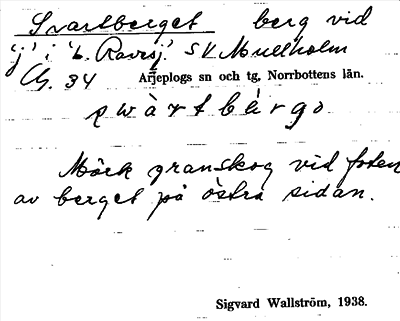 Svartberget berg vid
'j' i 'L. Ravsj.' SV Mullholm
34 Arjeplogs sn och tg, Norrbottens län.
swàrtbærgo
Mörk granskog vid foten
av berget på östra sidan.
Sigvard Wallström, 1938.